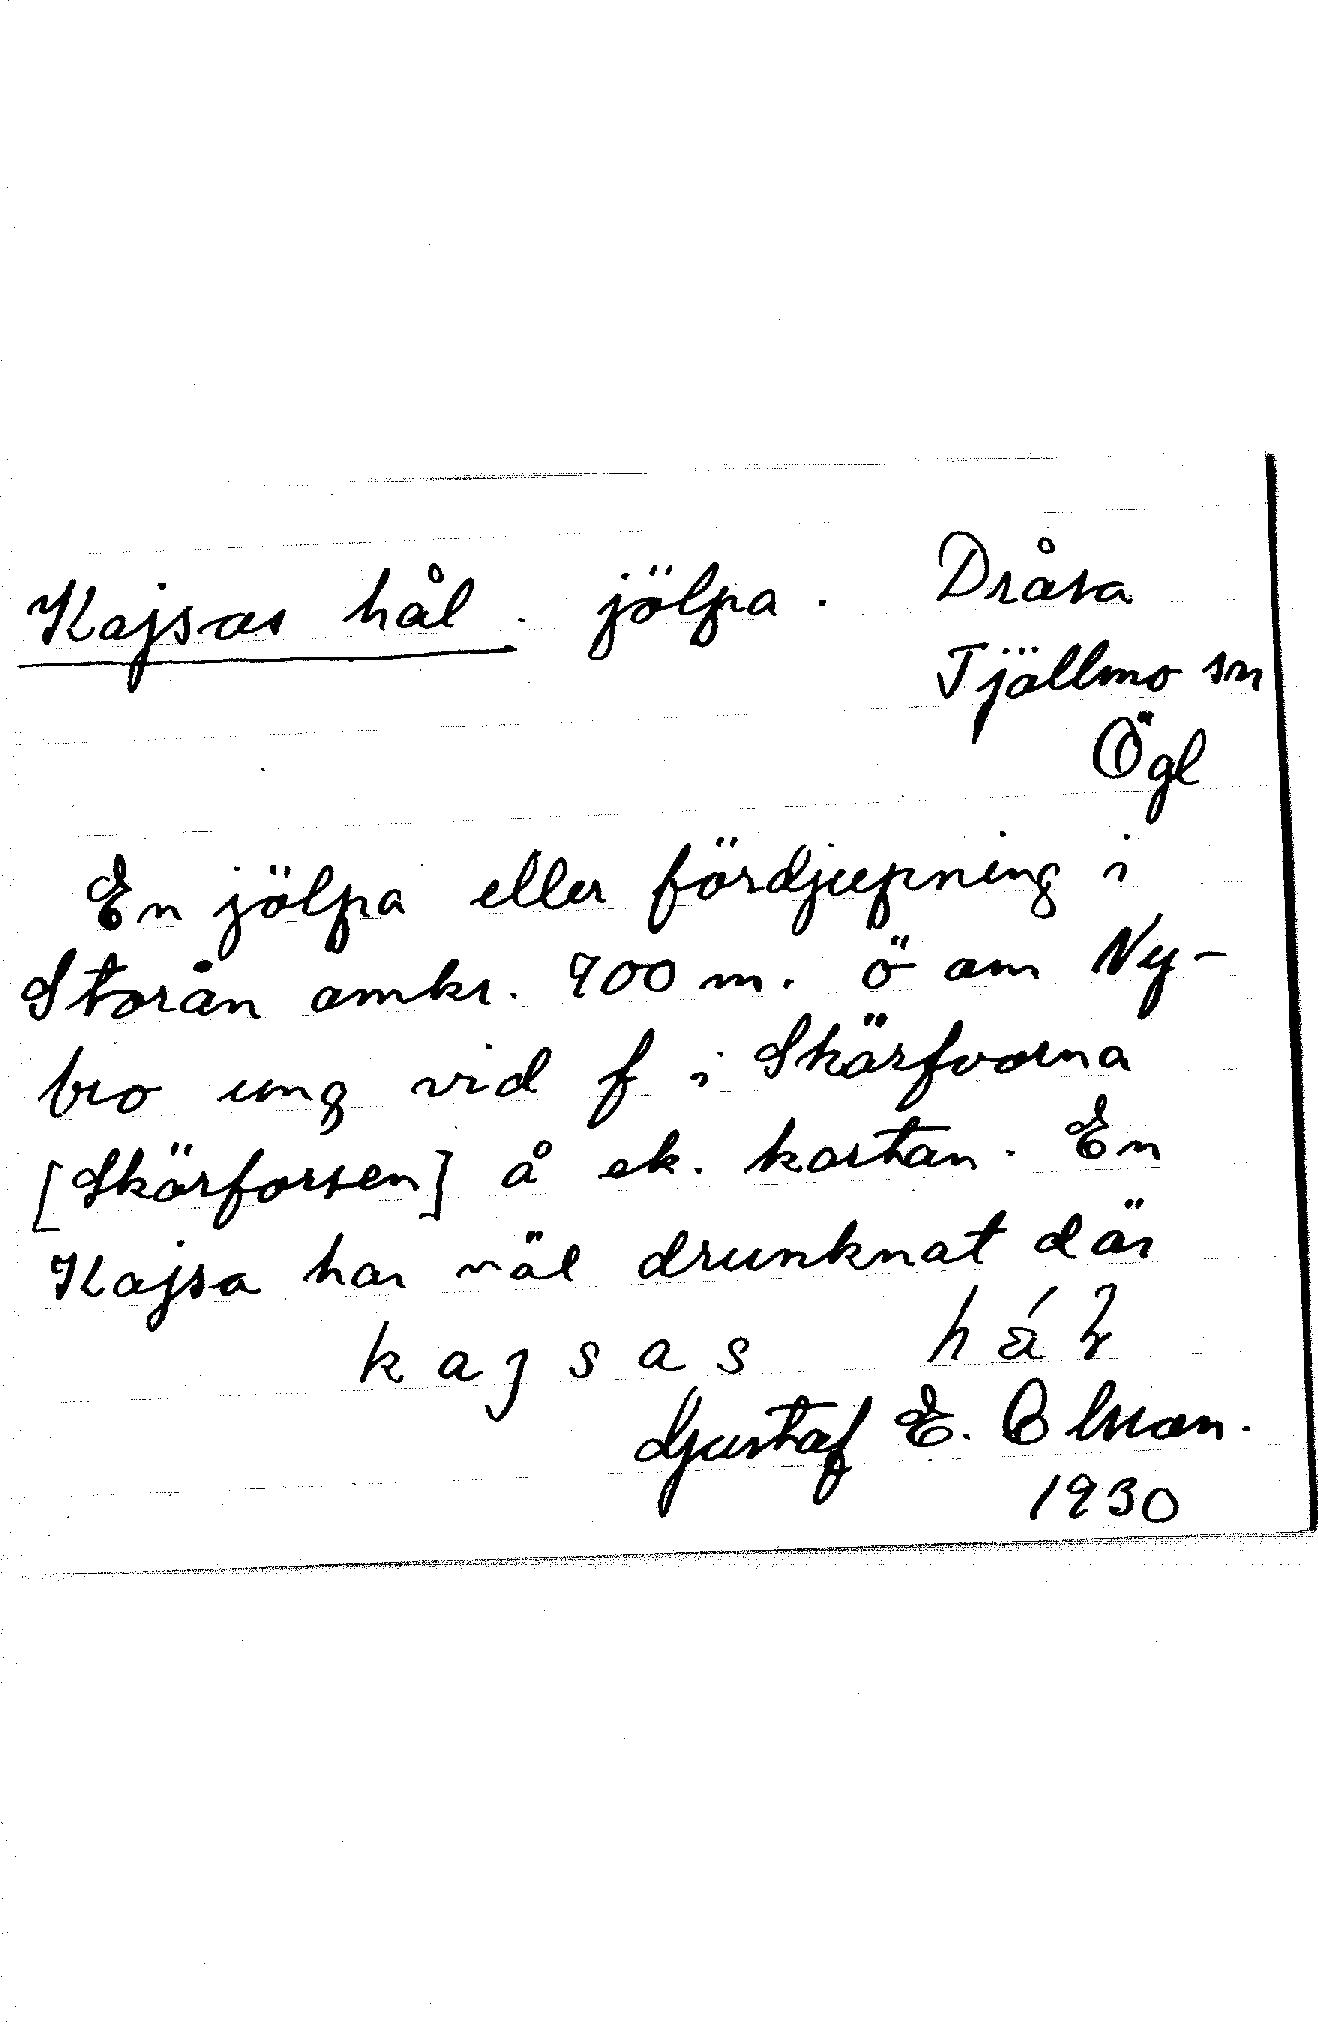 Kajsas hål. jölpa. Dråsa
Tjällmo sn
Ögl
En jölpa eller fördjupning i
Storån omkr. 900 m. ö om Ny-
bro ung vid f i Skärfvorna
[Skärforsen] å ek. kartan. En
Kajsa har väl drunknat där
kajsas
Gustaf E. Olsson.
1930